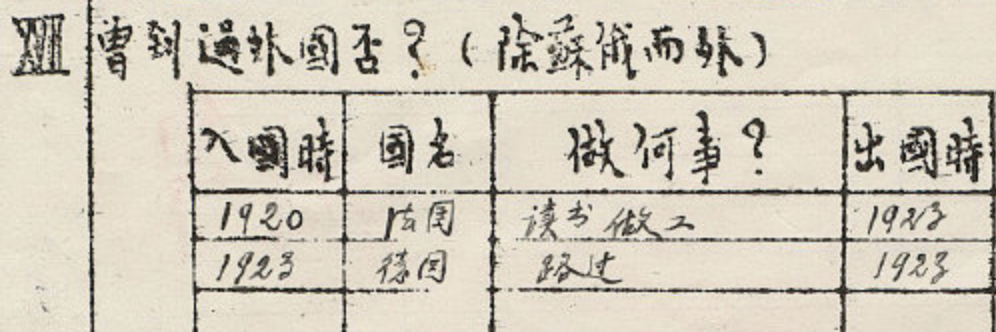 XII 曾到過外國否？（除蘇俄而外）
入國時 國名 做何事？ 出國時
1920 法国 读书做工 1923
1923 德国 路过 1923